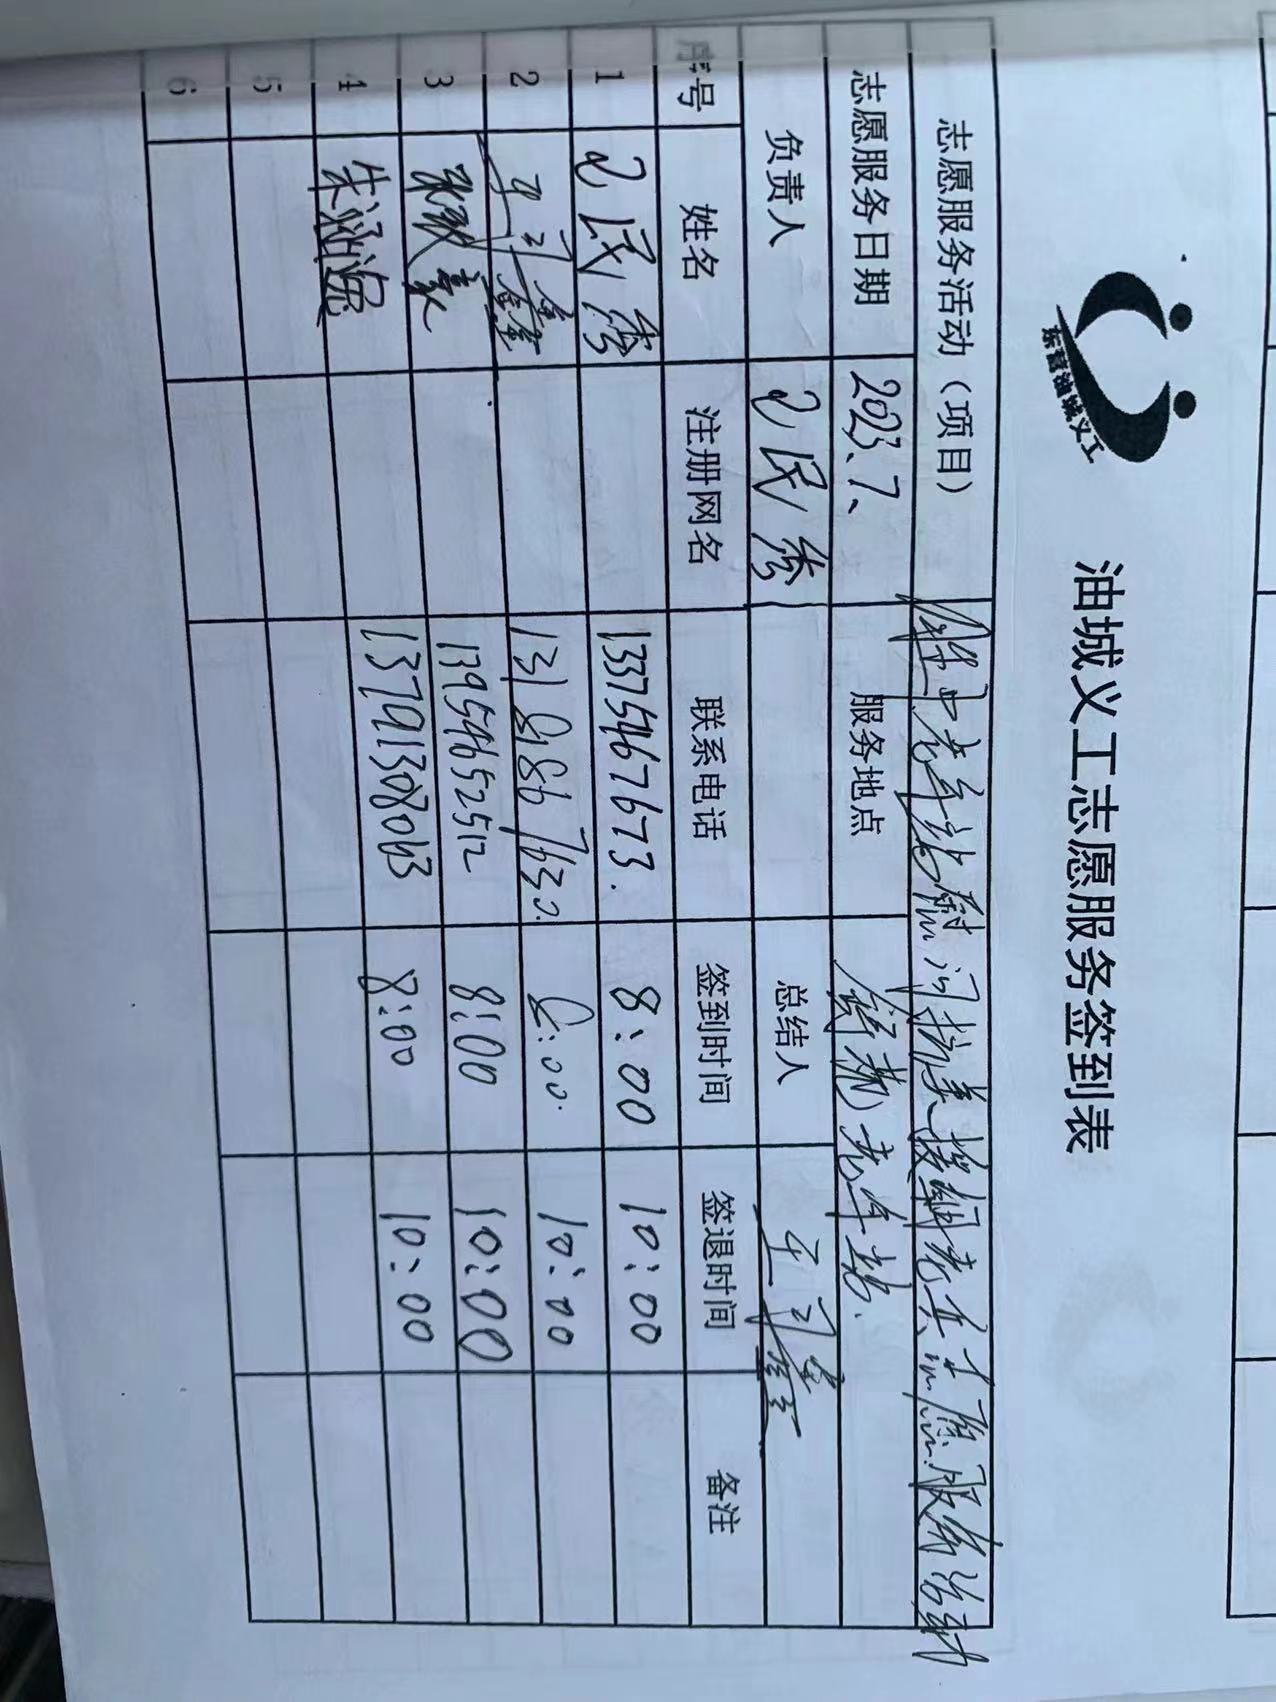 东营油城义工
油城义工志愿服务签到表
志愿服务活动（项目） 老年站慰问抗美援朝老兵志愿服务活动
志愿服务日期 2023.7、 服务地点 老年站.
负责人 民 总结人
序号 姓名 注册网名 联系电话 签到时间 签退时间 备注
1 民 13375467673. 8:00 10:00
2 鑫 13181867630. 8:00. 10:00
3 13954652512 8:00 10:00
4 朱涵 13791308063 8:00 10:00
5
6